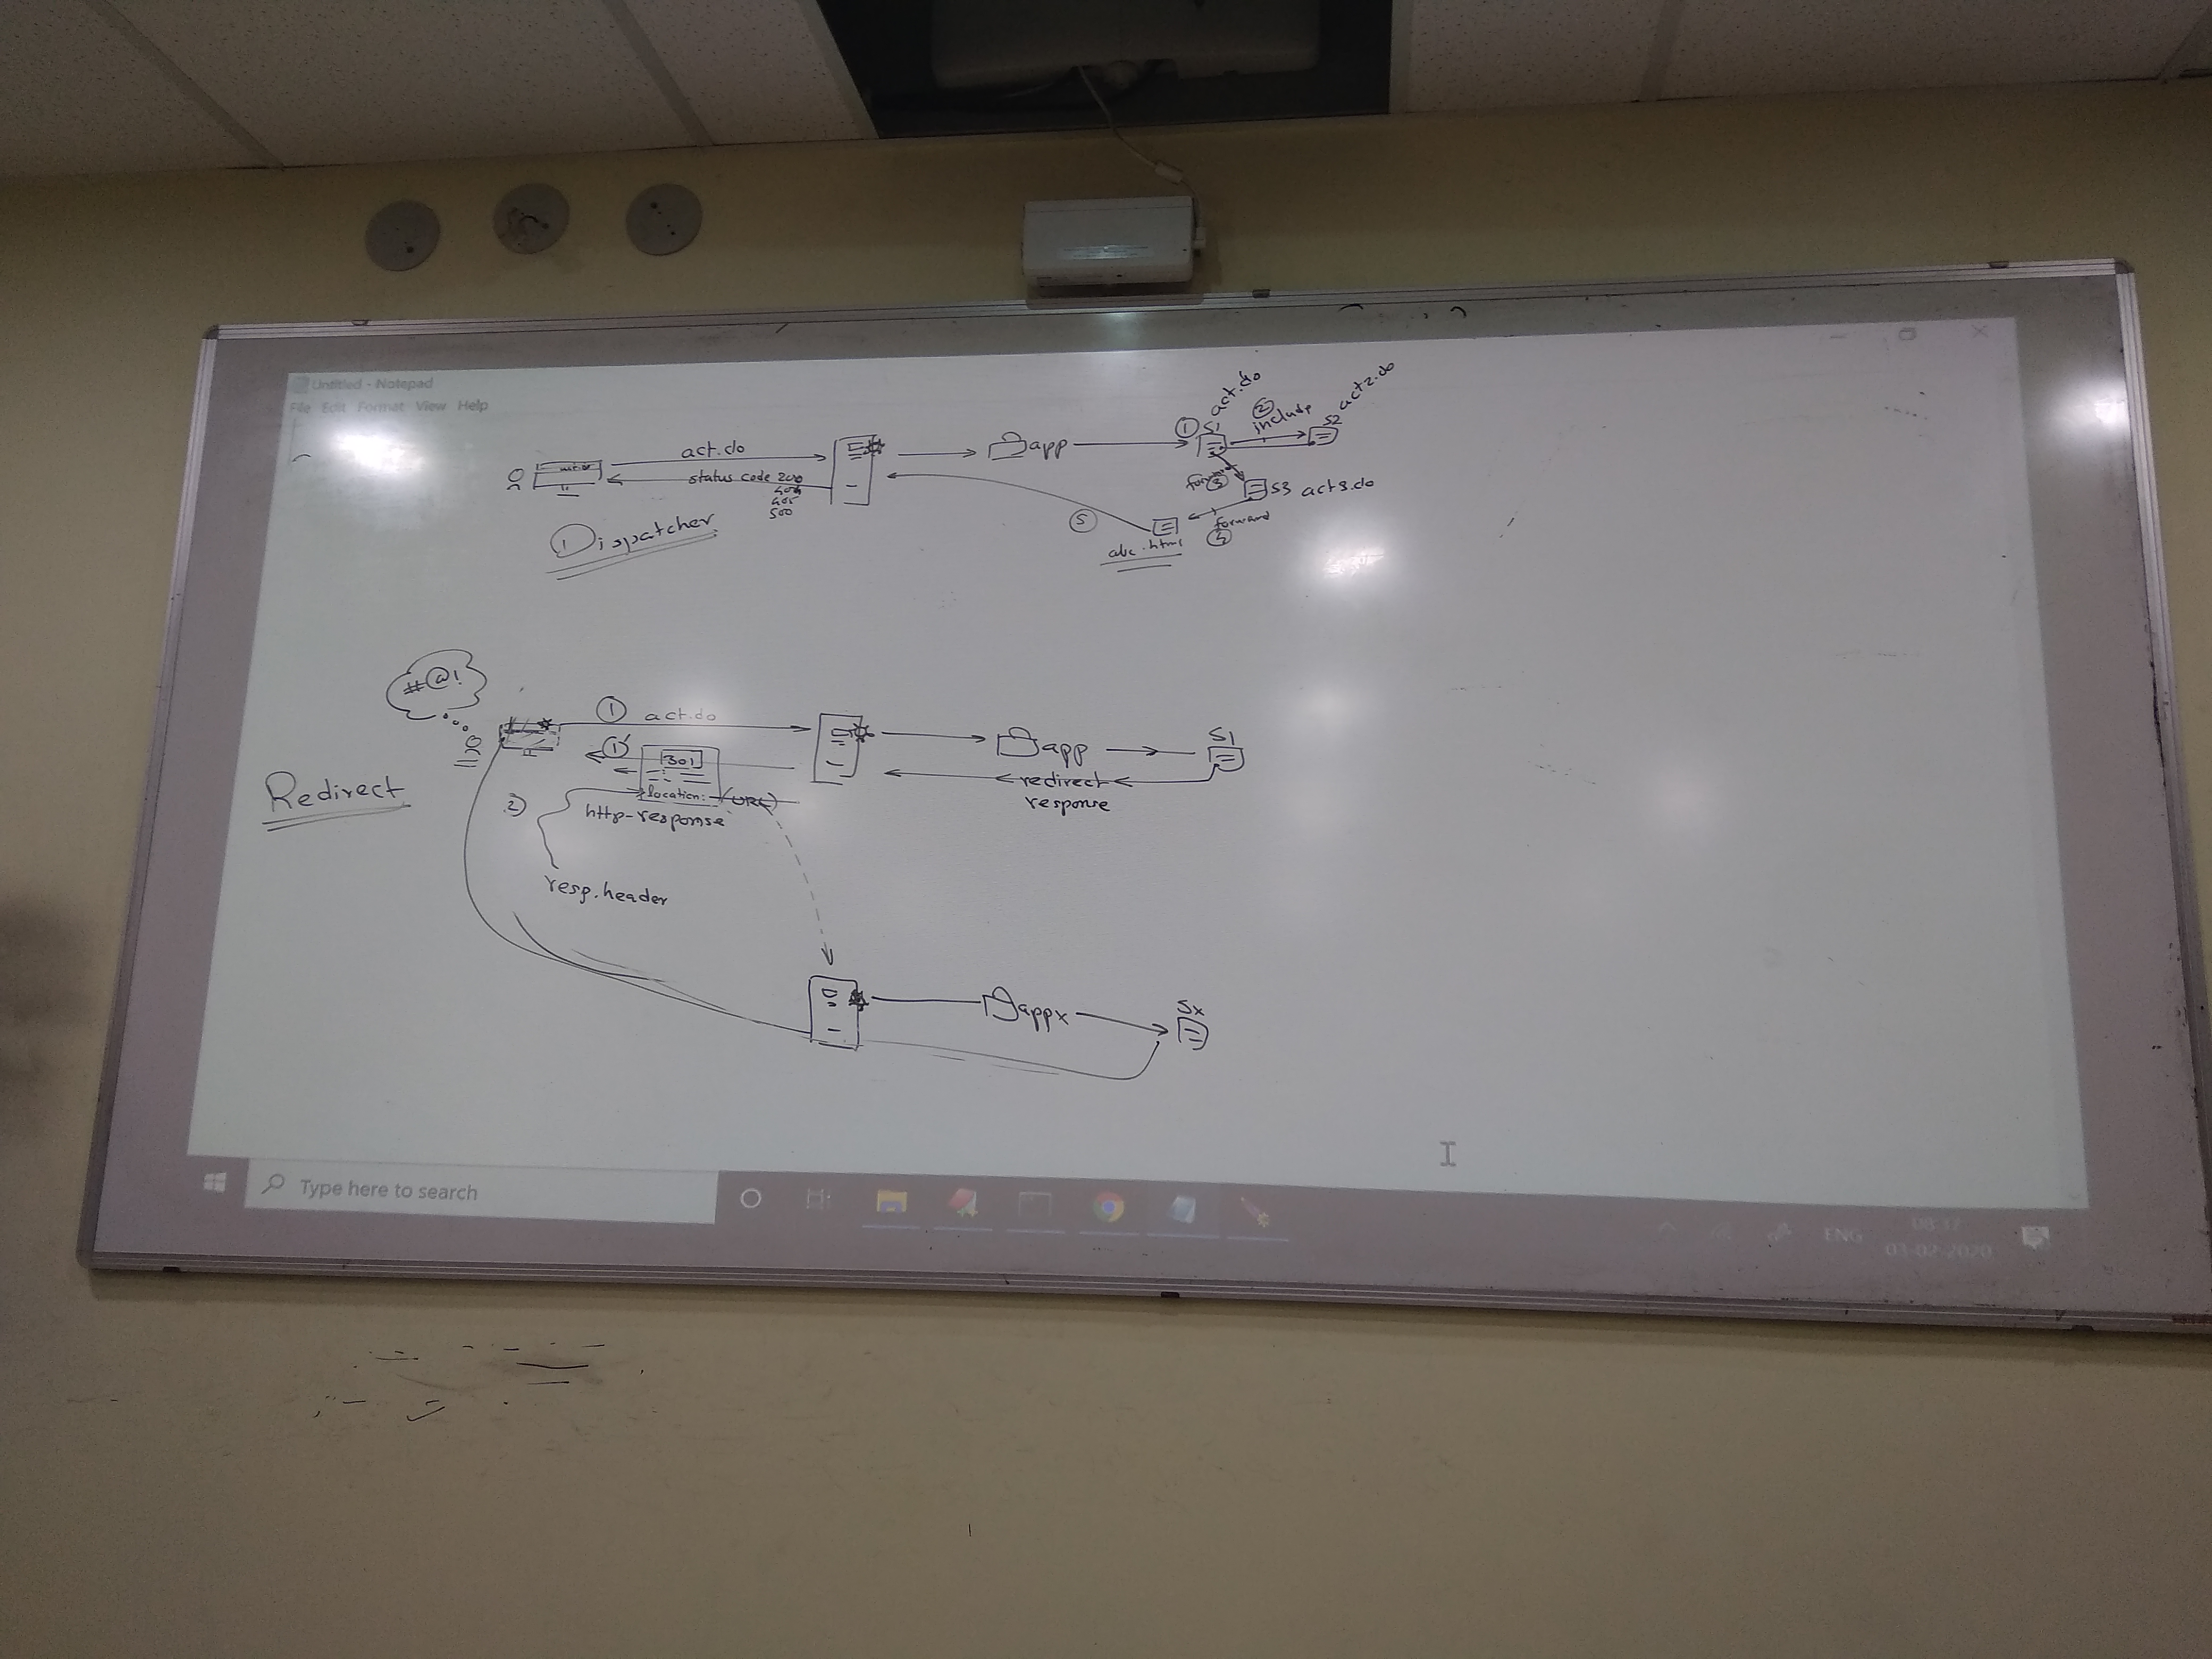 Untitled - Notepad
File Edit Format View Help
act.do
status code 200
404
405
500
Dispatcher
app
1
S1
act.do
2
include
S2
act2.do
3
S3 act3.do
forward
4
abc.html
5
#@!
1 act.do
1'
301
location: (URL)
http-response
2)
resp.header
Redirect
app
S1
redirect
response
appx
Sx
Type here to search
ENG
08:37
03-02-2020